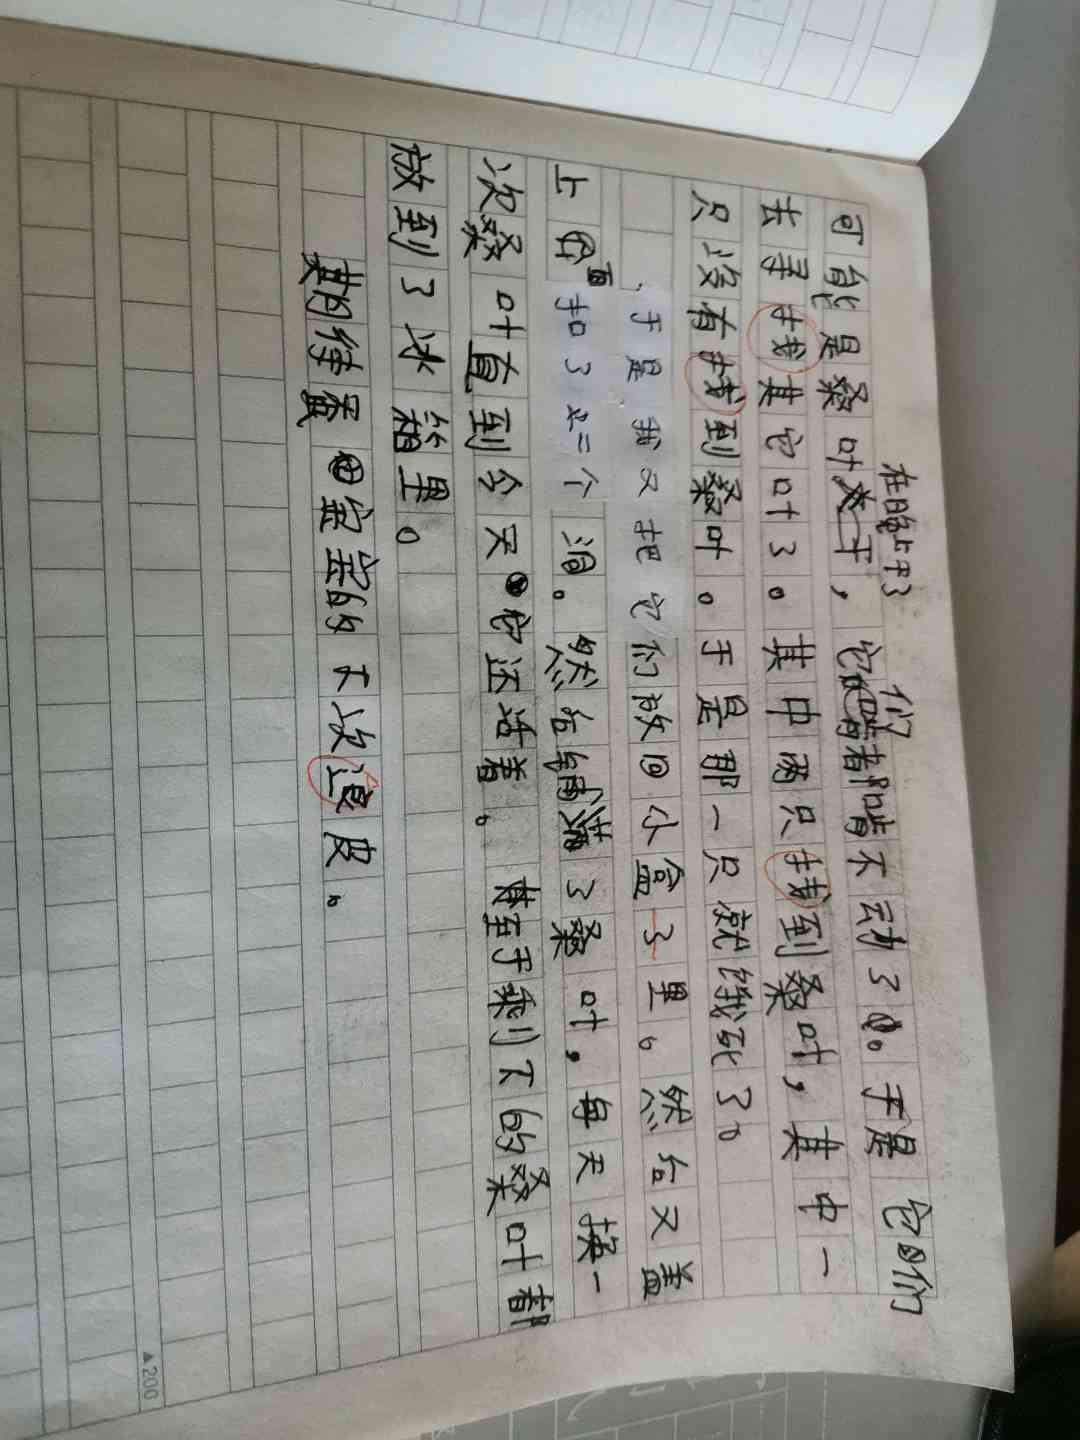 在晚上干了
们
可能是桑叶太干，它都啃不动了。于是它们
去寻找其它叶了。其中两只找到桑叶，其中一
只没有找到桑叶。于是那一只就饿死了。
，于是，我又把它们放回小盒子里。然后又盖
上面扣了上二个洞。然后铺满了桑叶，每天换一
次桑叶直到今天它还活着。甚至于剩下的桑叶都
放到了冰箱里。
期待蚕宝宝的下次退皮。
200